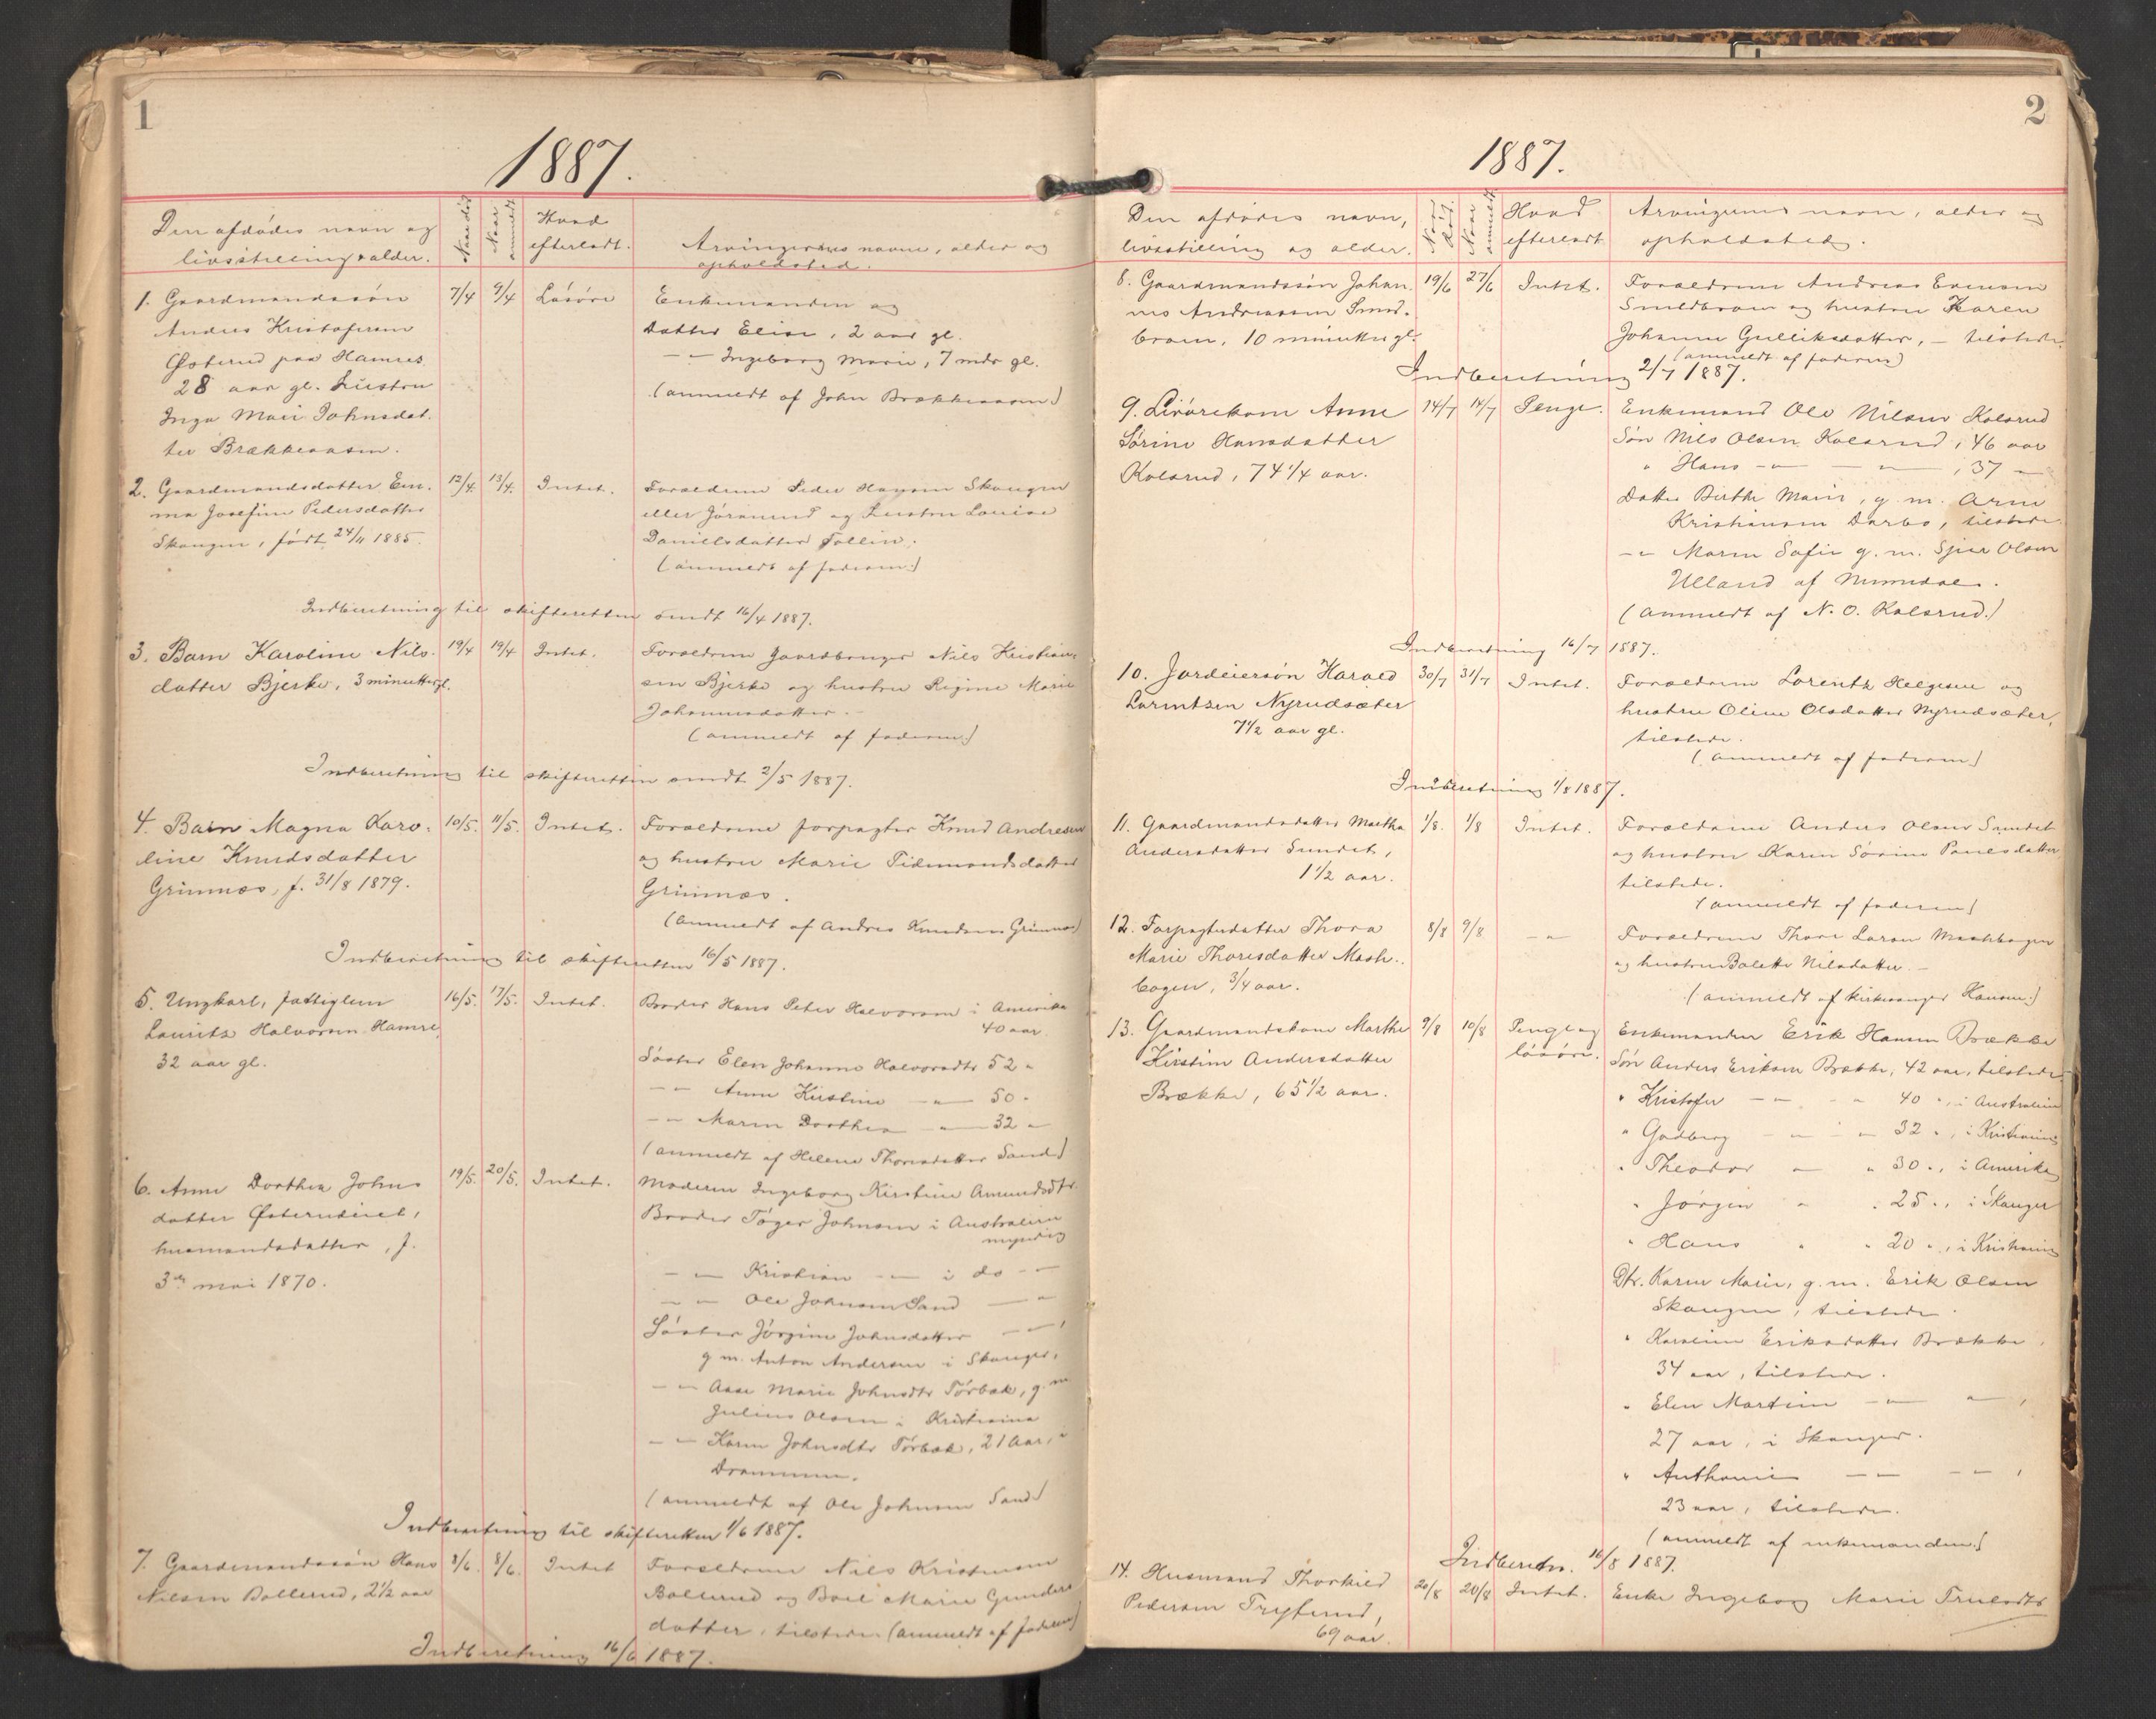 1
1887.
Den afdødes navn og
livsstilling & alder.
Naar død
Naar anmeldt
Hvad
efterladt.
Arvingernes navne, alder og
opholdsted.
1. Gaardmandssøn
Anders Kristofersen
Østerud paa Hamres
28 aar gl. Hustru
Inga Mari Johnsdat.
ter Brækkeaasen.
7/4
9/4
Løsøre
Enkemanden og
Datter Elise, 2 aar gl.
— " — Ingeborg Marie, 7 mdr gl.
(anmeldt af John Brækkeaasen)
2. Gaardmandsdatter Em.
ma Josefine Pedersdatter
Skaugen, født 24/11 1885.
12/4.
13/4.
Intet.
Forældrene Peder Hansen Skaugen
eller Jørand og hustru Louise
Danielsdatter Tollin.
(anmeldt af faderen.)
Indberetning til skifteretten sendt 16/4 1887.
3. Barn Karoline Nils.
datter Bjerke, 3 minutter gl.
19/4
19/4
Intet.
Forældrene gaardbruger Nils Kristian.
sen Bjerke og hustru Regine Marie
Johannesdatter.
(anmeldt af faderen.)
Indberetning til skifteretten sendt 2/5 1887.
4. Barn Magna Karo.
line Knudsdatter
Grimnæs, f. 31/8 1879.
10/5.
11/5.
Intet.
Forældrene forpagter Knud Andresen
og hustru Marie Tidemandsdatter
Grimnæs.
(anmeldt af Andres Knudsen Grimnæs)
Indberetning til skifteretten 16/5 1887.
5. Ungkarl, fattiglem
Lauritz Halvorsen Hamre,
32 aar gl.
16/5.
17/5.
Intet.
Broder Hans Peter Halvorsen i Amerika
40 aar.
Søster Elen Johanne Halvorsdtr 52 "
— " — Anne Kirstine — " — 50 "
— " — Maren Dorthea — " — 32 "
(anmeldt af Helene Thorsdatter Sand)
6. Anne Dorthea Johns
datter Østerudeiet,
husmandsdatter, f.
3de mai 1870.
19/5.
20/5.
Intet.
Moderen Ingeborg Kirstine Amundsdtr.
Broder Tøger Johnsen i Australien
myndig
— " — Kristian — " — i do — " —
— " — Ole Johnsen Sand — " —
Søster Jørgine Johnsdatter — " —,
g. m. Anton Andersen i Skanger,
— " — Aase Marie Johnsdtr Tørbak, g. m.
Julius Olsen i Kristiania
— " — Karen Johnsdtr Tørbak, 21 aar, i
Drammen.
(anmeldt af Ole Johnsen Sand)
Indberetning til skifteretten 1/6 1887.
7. Gaardmandssøn Hans
Nilsen Bollerud, 2 1/2 aar
8/6.
8/6.
Intet
Forældrene Nils Kristensen
Bollerud og Boel Marie Gunders
datter, tilstede (anmeldt af faderen)
Indberetning 16/6 1887.
2
1887.
Den afdødes navn,
livsstilling og alder.
Naar død.
Naar anmeldt
Hvad
efterladt
Arvingernes navn, alder og
opholdsted.
8. Gaardmandssøn Johan.
nes Andreassen Smed.
braaen, 10 minutter gl.
19/6
27/6
Intet.
Forældrene Andreas Evensen
Smedbraaen og hustru Karen
Johanne Gulliksdatter, — tilstede.
(anmeldt af faderen)
Indberetning 2/7 1887.
9. Livørekone Anne
Sørine Hansdatter
Kolsrud, 74 1/4 aar.
14/7
14/7
Penge.
Enkemand Ole Nilsen Kolsrud
Søn Nils Olsen Kolsrud, 46 aar
" Hans — " — — " —, 37 "
Datter Birthe Marie, g. m. Arne
Kristiansen Darbo, tilstede.
— " — Maren Sofie g. m. Sjur Olsen
Ulland af Numedal.
(anmeldt af N. O. Kolsrud.)
Indberetning 16/7 1887.
10. Jordeiersøn Harald
Larentsen Nyrudsæter
7 1/2 aar gl.
30/7
31/7
Intet.
Forældrene Lorentz Helgesen og
hustru Oline Olsdatter Nyrudsæter,
tilstede.
(anmeldt af faderen)
Indberetning 1/8 1887.
11. Gaardmandsdatter Martha
Andersdatter Sundet,
1 1/2 aar.
1/8.
1/8
Intet.
Forældrene Anders Olsen Sundet
og hustru Karen Sørine Paulsdatter
tilstede.
(anmeldt af faderen)
12. Forpagterdatter Thora
Marie Thoresdatter Mash.
bogen, 3/4 aar.
8/8
9/8
— " —
Forældrene Thore Larsen Mashbogen
og hustru Bolette Nilsdatter. —
(anmeldt af kirkesanger Hansen.)
13. Gaardmandskone Marthe
Kirstine Andersdatter
Brække, 65 1/2 aar.
9/8
10/8
Penge og
løsøre.
Enkemanden Erik Hansen Brække
Søn Anders Eriksen Brække, 42 aar, tilstede
" Kristofer — " — " 40 ", i Australien
" Gudberg — " — " 32 ", i Kristiania
" Theodor " " 30 ", i Amerika
" Jørgen " " 25 ", i Skanger
" Hans " " 20 ", i Kristiania
Dtr. Karen Marie, g. m. Erik Olsen
Skaugen, tilstede.
" Karoline Eriksdatter Brække,
34 aar, tilstede.
" Elen Martine — " — " —,
27 aar, i Skanger.
" Anthonie — " — — " —,
23 aar, tilstede.
(anmeldt af enkemanden.)
Indberetn. 16/8 1887.
14. Husmand Thorkild
Pedersen Tryterud,
69 aar.
20/8
20/8
Intet.
Enke Ingeborg Marie Trulsdtr